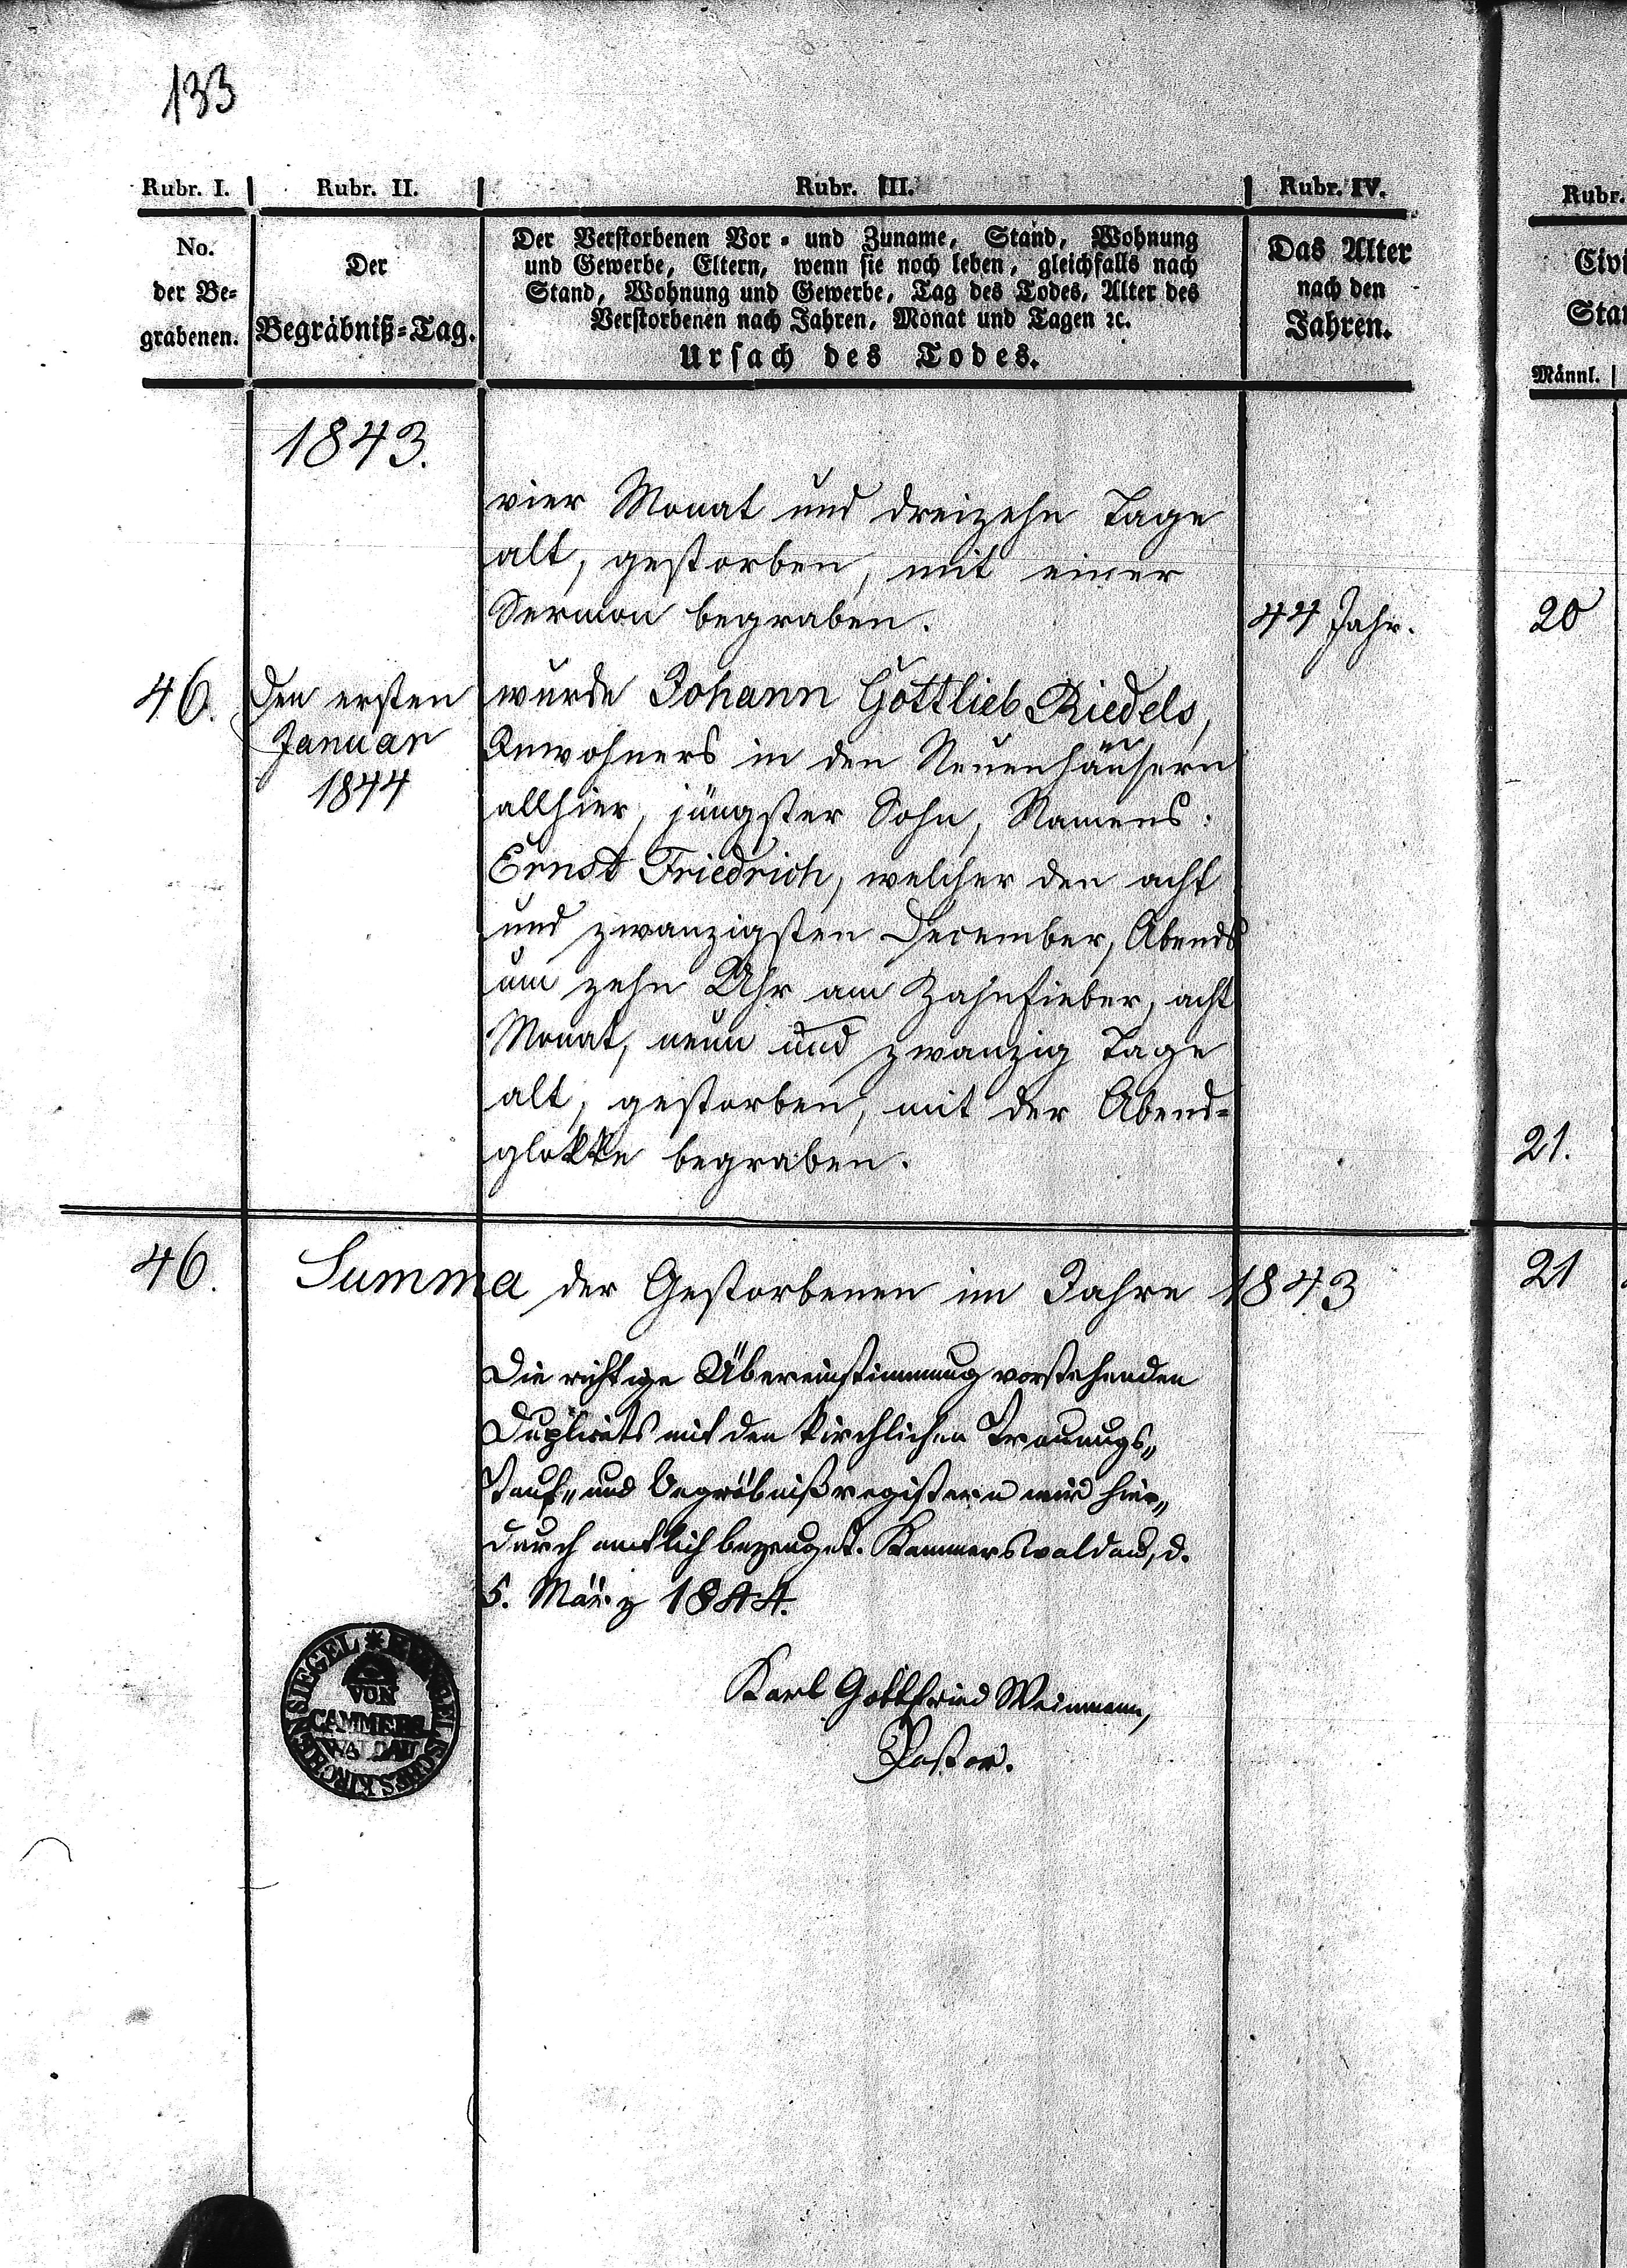 133
Rubr. I. Rubr. II. Rubr. III. Rubr. IV. Rubr.
No.
der Be-
grabenen.
Der
Begräbniß-Tag.
Der Verstorbenen Vor- und Zuname, Stand, Wohnung
und Gewerbe, Eltern, wenn sie noch leben, gleichfalls nach
Stand, Wohnung und Gewerbe, Tag des Todes, Alter des
Verstorbenen nach Jahren, Monat und Tagen ꝛc.
Ursach des Todes.
Das Alter
nach den
Jahren.
Civi
Sta
Männl.
1843.
vier Monat und dreizehn Tage
alt, gestorben, mit einer
Sermon begraben. 44 Jahr. 20
46. Den ersten
Januar
1844
wurde Johann Gottlieb Riedels,
Inwohners in den Neuenhäusern
allhier, jüngster Sohn, Namens:
Ernst Friedrich, welcher den acht
und zwanzigsten December, Abends
um zehn Uhr am Zahnfieber, acht
Monat, neun und zwanzig Tage
alt, gestorben, mit der Abend-
glokke begraben. 21.
46. Summa der Gestorbenen im Jahre 1843 21
Die richtige Übereinstimmung vorstehenden
Duplicats mit den kirchlichen Trauungs„
Tauf„ und Begräbnißregistern wird hier„
durch amtlich bezeuget. Kammerswaldau, d.
5. März 1844.
Karl Gottfried Weinmann,
Pastor.
EVANGELISCHES KIRCHEN SIEGEL
VON
CAMMERS
WALDAU